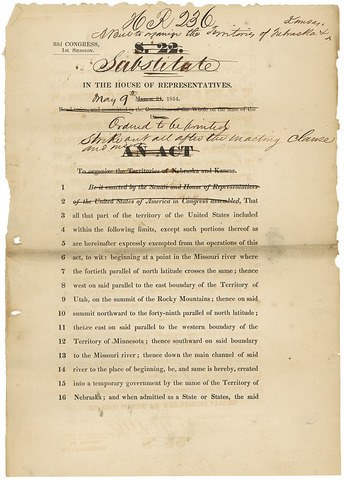 H R 236
Kansas.
A Bill to organize the Territories of Nebraska &
33d CONGRESS,
1st Session.
S. 22.
Substitute
IN THE HOUSE OF REPRESENTATIVES.
May 9th March 21, 1854.
Read twice, and committed to the Committee of the Whole on the state of the
Union.
Ordered to be printed
Strike out all after the enacting clause
and insert
AN ACT
To organize the Territories of Nebraska and Kansas.
1 Be it enacted by the Senate and House of Representatives
2 of the United States of America in Congress assembled, That
3 all that part of the territory of the United States included
4 within the following limits, except such portions thereof as
5 are hereinafter expressly exempted from the operations of this
6 act, to wit: beginning at a point in the Missouri river where
7 the fortieth parallel of north latitude crosses the same; thence
8 west on said parallel to the east boundary of the Territory of
9 Utah, on the summit of the Rocky Mountains; thence on said
10 summit northward to the forty-ninth parallel of north latitude;
11 thence east on said parallel to the western boundary of the
12 Territory of Minnesota; thence southward on said boundary
13 to the Missouri river; thence down the main channel of said
14 river to the place of beginning, be, and same is hereby, created
15 into a temporary government by the name of the Territory of
16 Nebraska; and when admitted as a State or States, the said